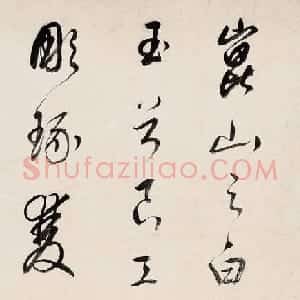 崑山之白
玉良工
彫琢雙
Shufaziliao.com